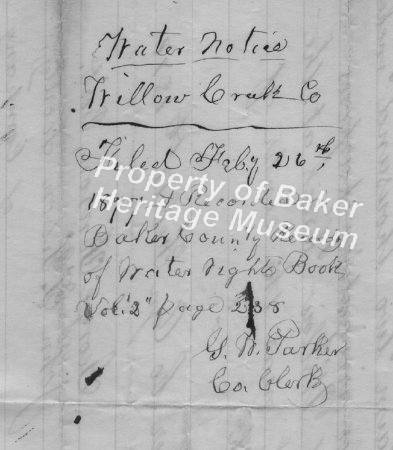 Water Notice
Willow Creek Co
Filed Feby 26th,
1877 & Recorded
Baker County Records
of Water Rights Book
Vol. "2" page 238
G. W. Parker
Co. Clerk
Property of Baker
Heritage Museum